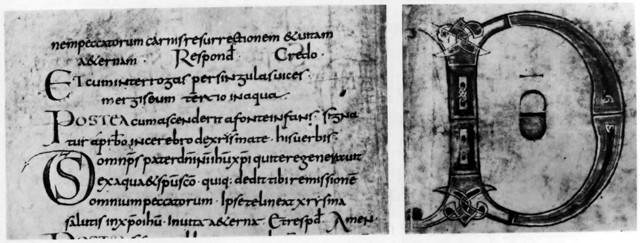 nem peccatorum carnis resurrectionem & uitam
a&ernam. Respond& Credo.
Et cum interrogas per singulas uices
mergis eum tertio in aqua.
Postea cum ascenderit a fonte infans. signa
tur a prbo in cerebro de xrismate. his uerbis.
Ds omnps pater dni nri ihu xpi qui te regenerauit
ex aqua & spu sco. quiq; dedit tibi remissionem
omnium peccatorum. Ipse te lineat xrisma
salutis in xpo ihu. In uita a&erna. Et respd. Amen.
D